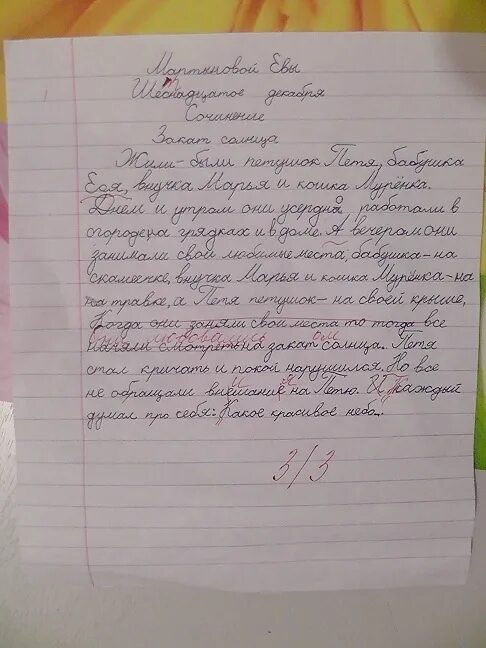 Мартыновой Евы
Шеснадцатое декабря
т
Сочинение
Закат солнца
Жили-были петушок Петя, бабушка
Еся, внучка Марья и кошка Мурёнка.
Днем и утром они усердно работали в
огороде на грядках и в доме. А вечером они
занимали свои любимые места, бабушка - на
скамеечке, внучка Марья и кошка Мурёнка - на
на травке, а Петя петушок - на своей крыше,
Когда они заняли свои места то тогда все
любовались ом
начали смотреть на закат солнца. Петя
стал кричать и покой нарушился. Но все
не обращали внимание на Петю. И каждый
думал про себя: Какое красивое небо...
3/3